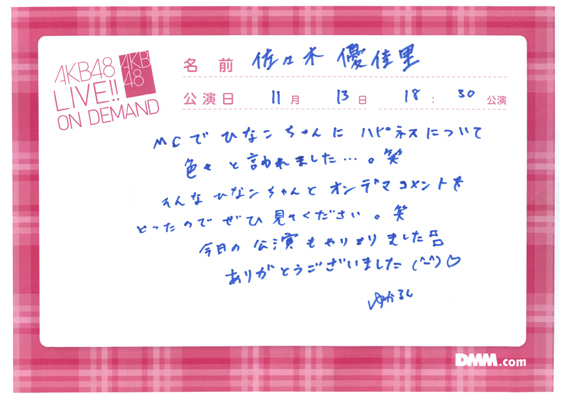 AKB48
LIVE!!
ON DEMAND
AKB
48
名前 佐々木 優佳里
公演日 11月 13日 18:30 公演
MCで ひなこちゃんに ハピネスについて
色々と言われました…。笑
そんな ひなこちゃんと オンデマコメントを
とったので ぜひ 見てください。笑
今日の公演もやりきりました
ありがとうございました (^-^)♡
ゆかるん
DMM.com